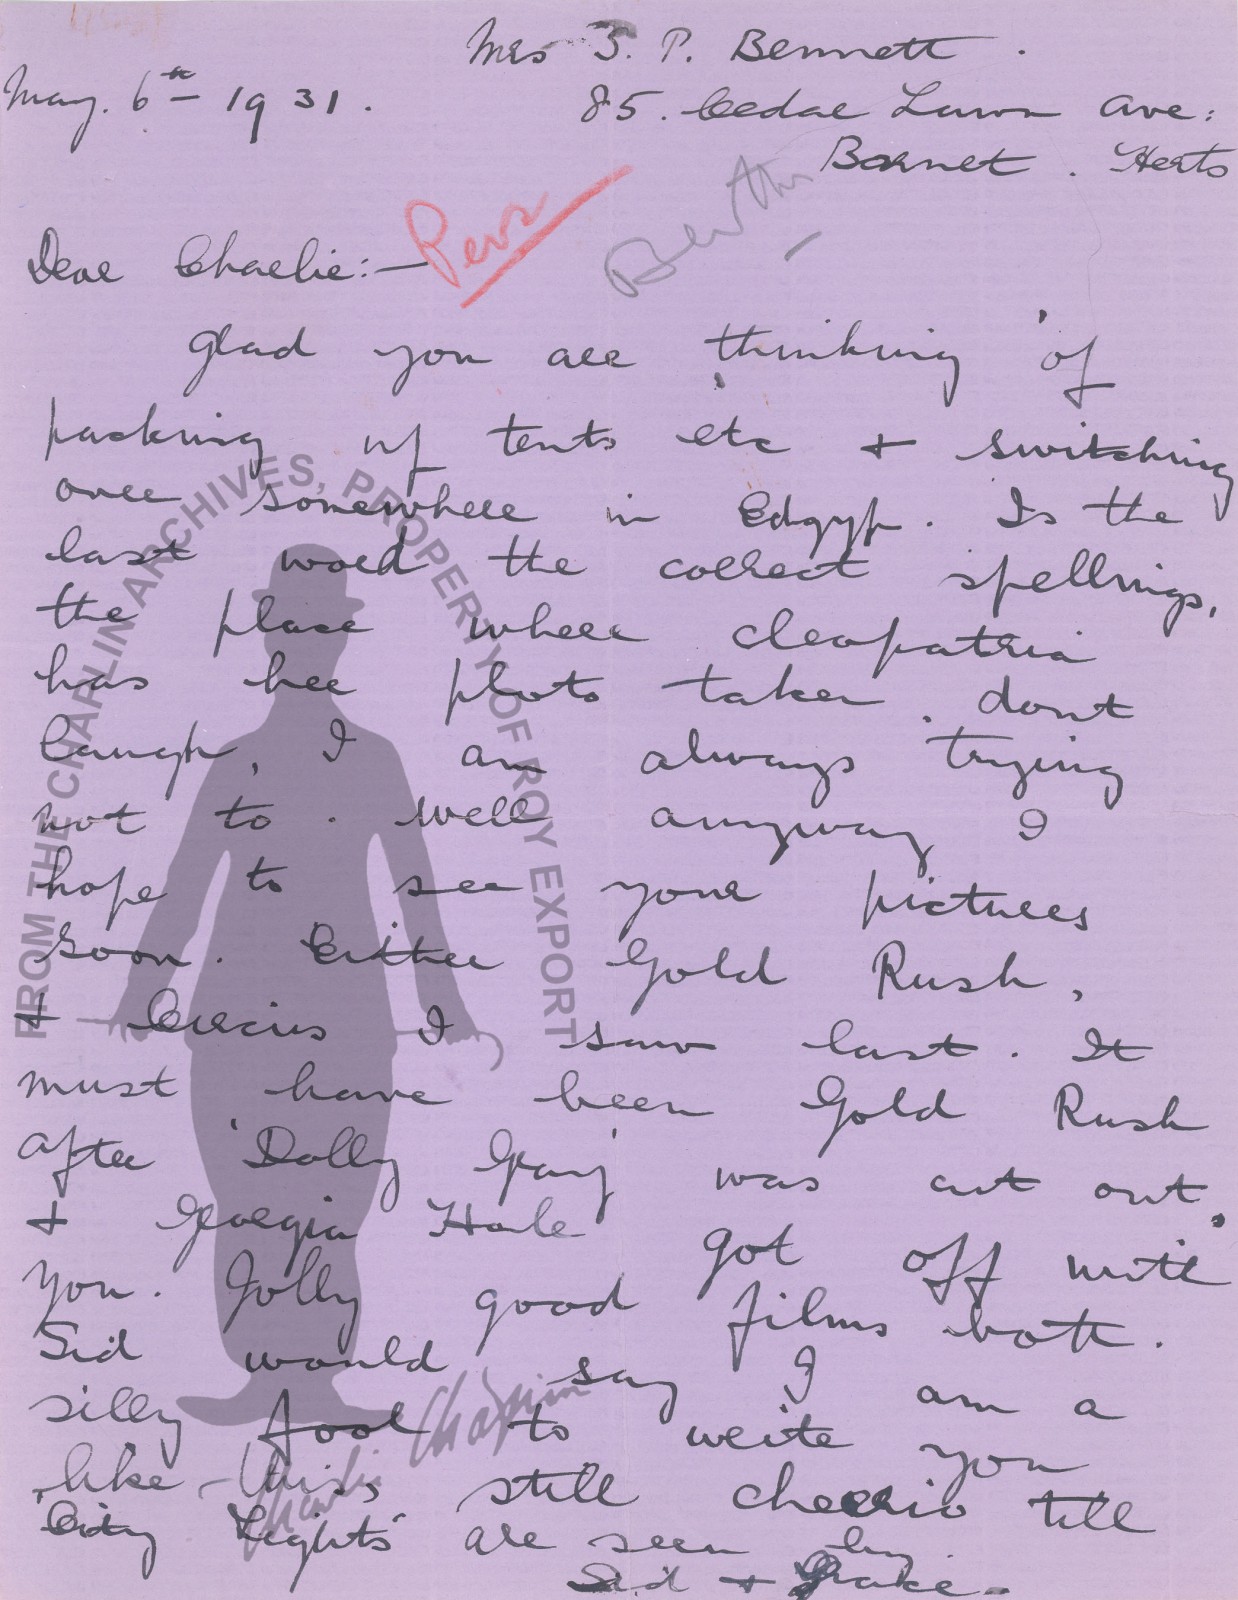 Mrs S. P. Bennett.
May. 6th - 1931.
85. Cedar Lawn Ave:
Barnet. Herts
Dear Charlie:—
Pers
Glad you are thinking of
packing up tents etc + switching
over somewhere in Edgyp. Is the
last word the correct spellings,
the place where cleopatria
has her photo taken. dont
laugh, I am always trying
not to. Well anyway I
hope to see your pictures
soon. Either Gold Rush,
+ Circius I saw last. It
must have been Gold Rush
after 'Dolly Gray' was cut out,
+ Georgia Hale got off with
you. Jolly good films both.
Sid would say I am a
silly fool to write you
like - this, still cheerio till
'City Lights' are seen by
Sid + Grace.
FROM THE CHAPLIN ARCHIVES, PROPERTY OF ROY EXPORT
Charlie Chaplin